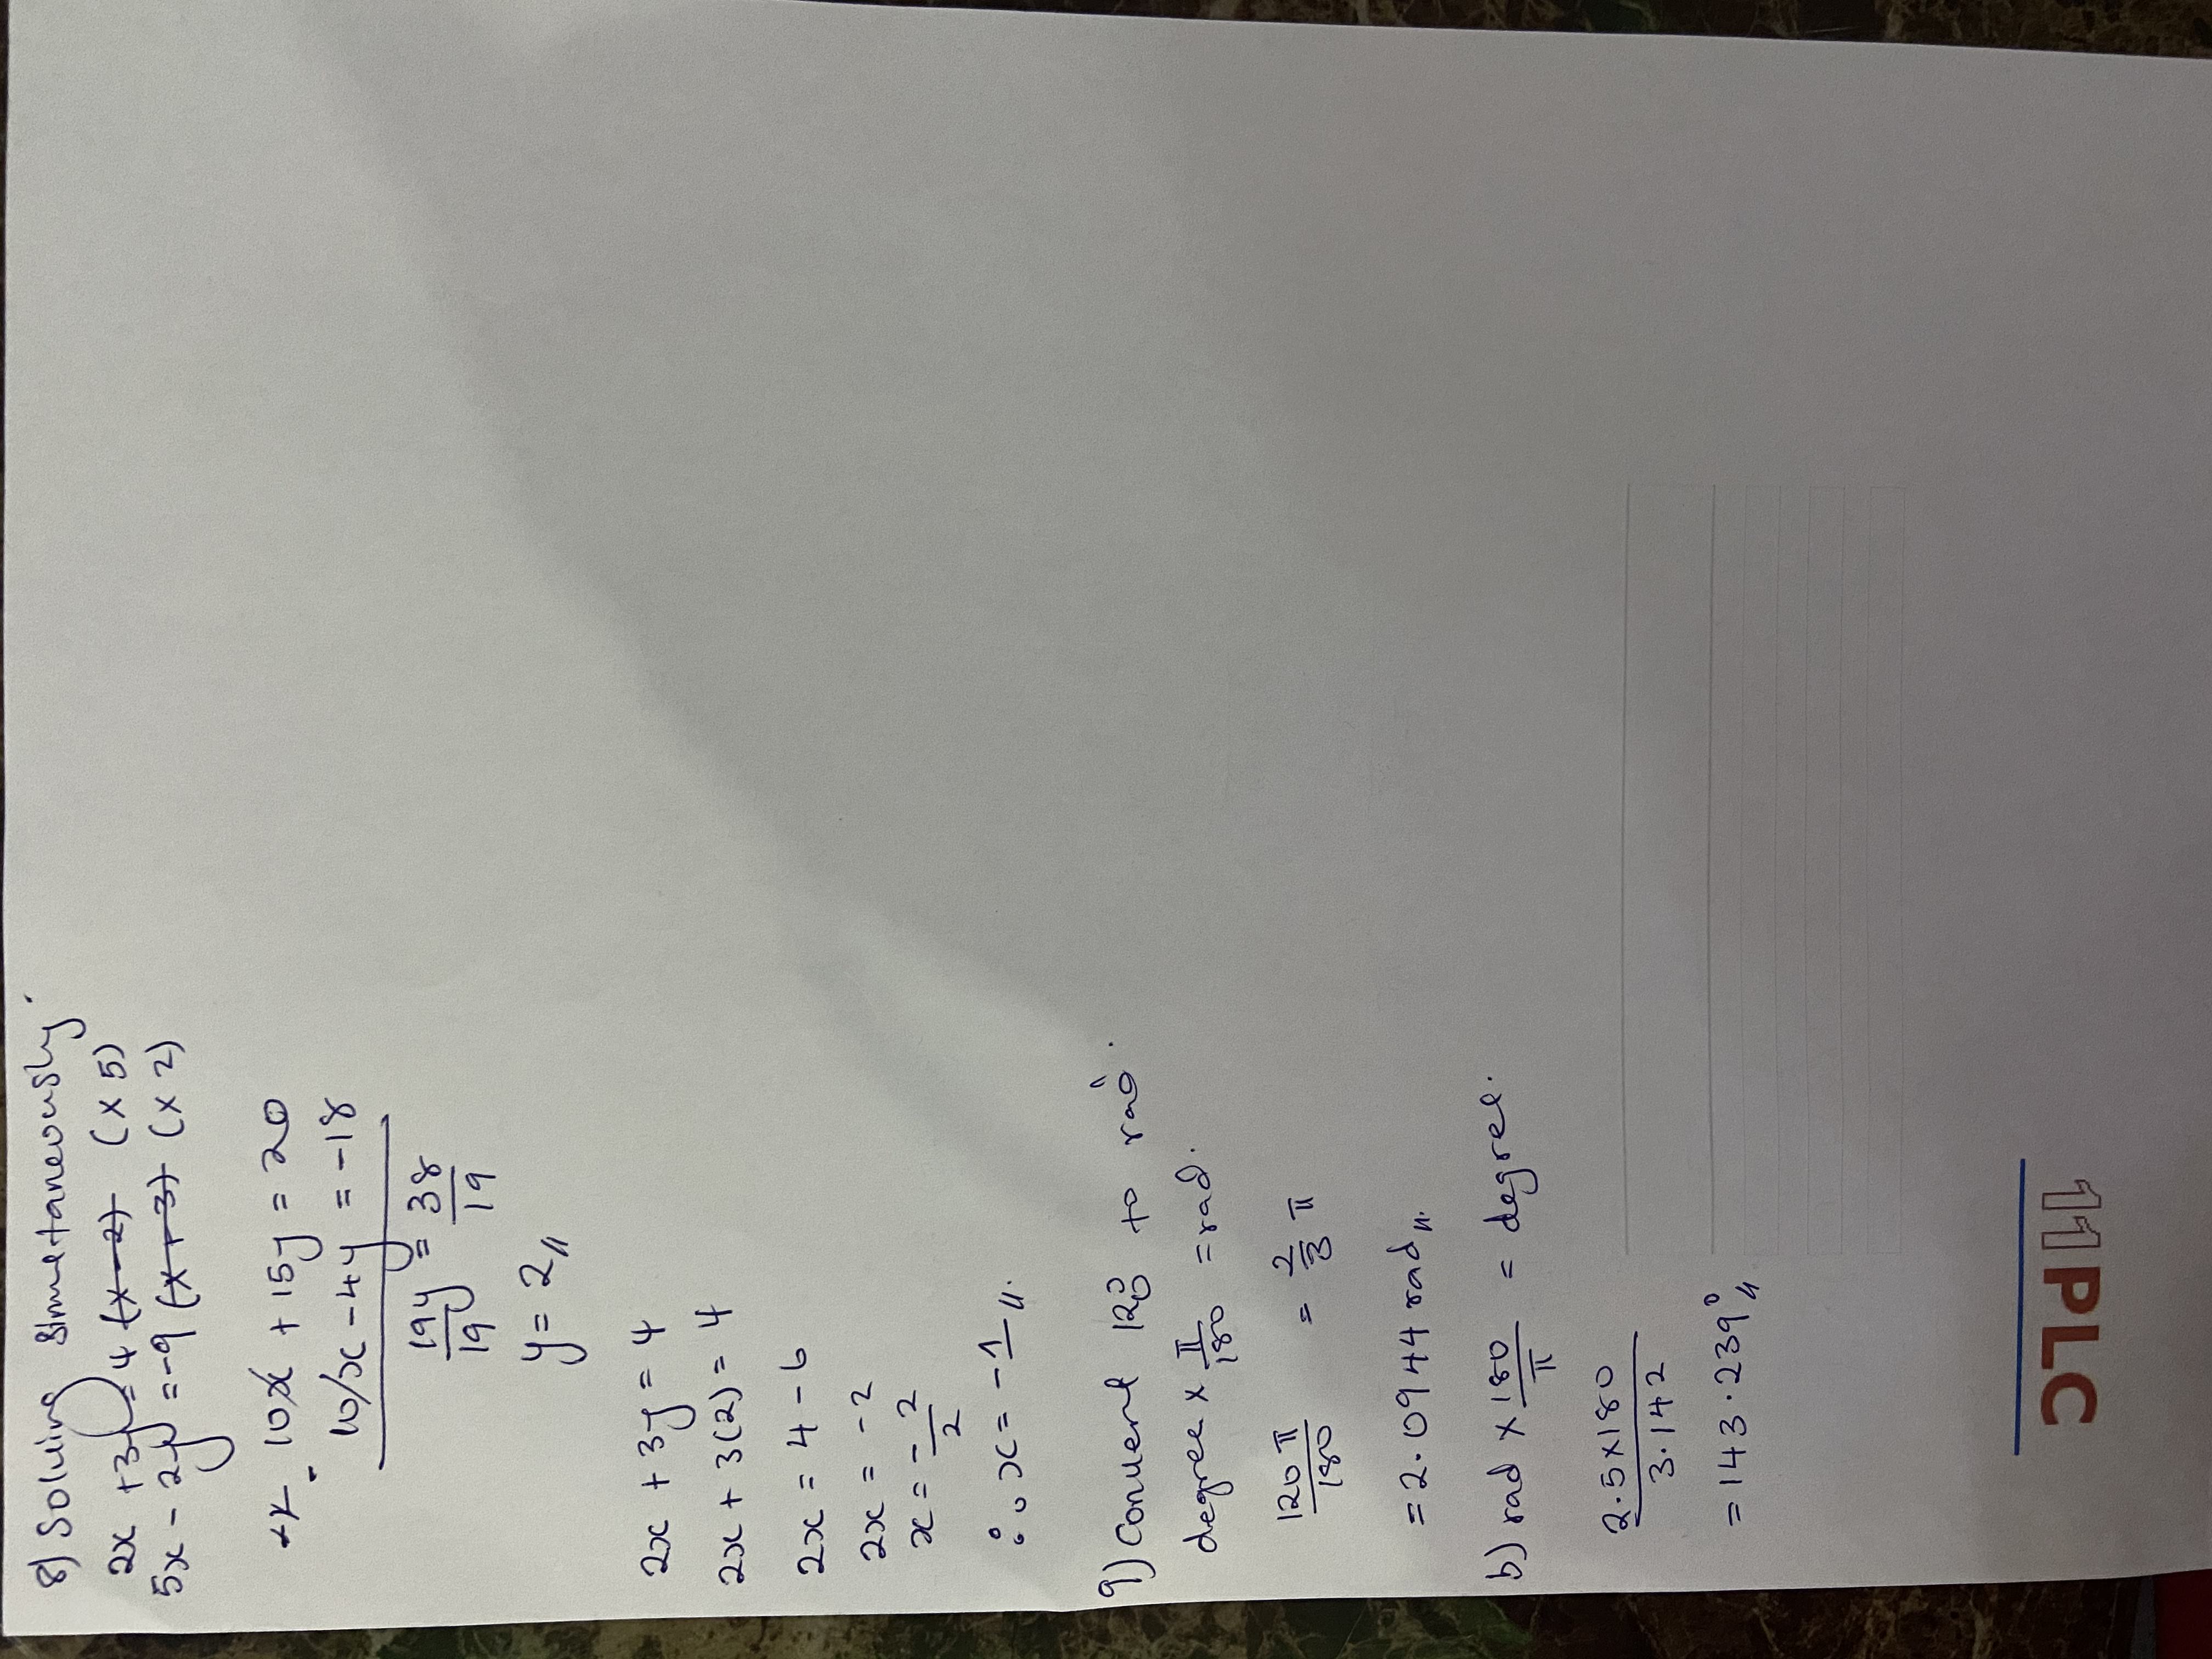 8) Solving Simultaneously.
2x + 3y = 4 (x - 2) (x 5)
5x - 2y = -9 (x + 3) (x 2)
- 10x + 15y = 20
10x - 4y = -18
19y/19 = 38/19
y = 2//
2x + 3y = 4
2x + 3(2) = 4
2x = 4 - 6
2x = -2
x = -2/2
∴ x = -1 //.
9) Convert 120° to rad.
degree x π/180 = rad.
120π/180 = 2/3 π
= 2.0944 rad //.
b) rad x 180/π = degree.
2.5x180/3.142
= 143.239° //
11PLC